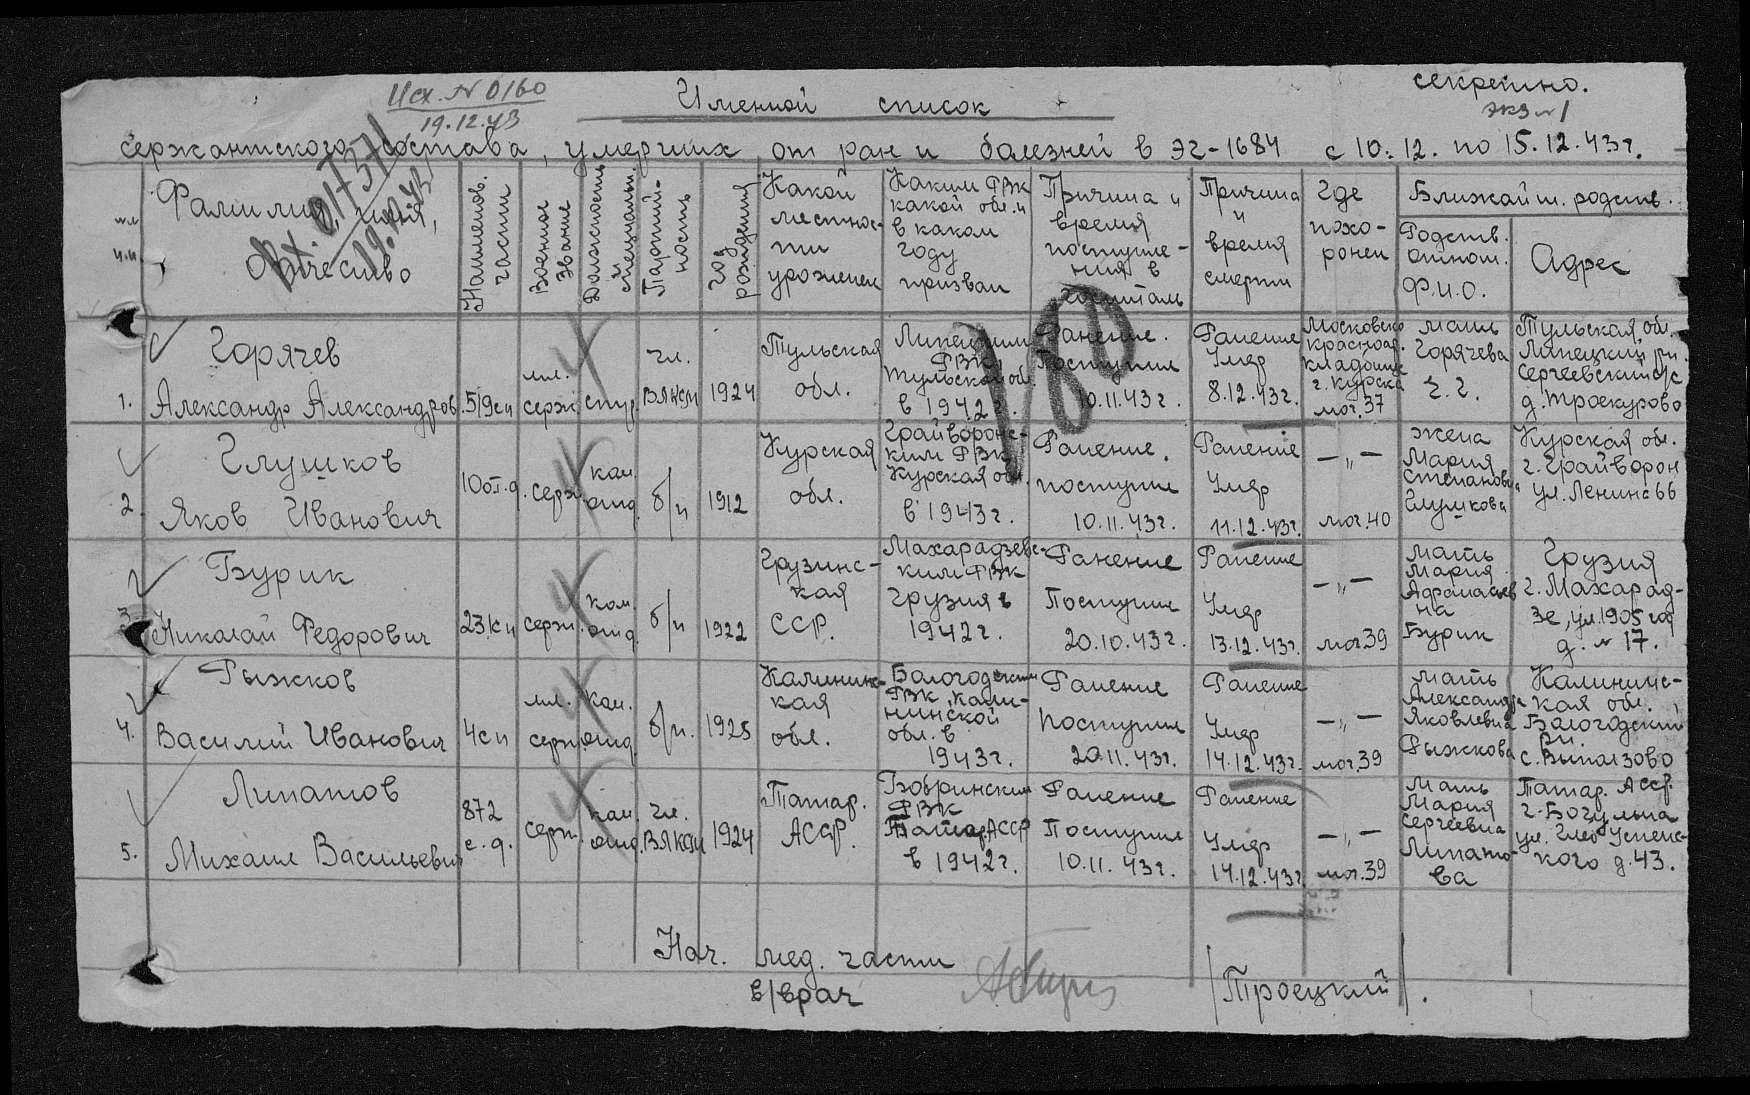 Исх. N 0160
19.12.43
секретно.
экз N 1
Именной список
сержантского состава, умерших от ран и болезней в ЭГ-1684 с 10.12. по 15.12.43г.
Вх. 01737
19.12.43
Фамилия, имя,
отчество
Наименов.
части
Военное
звание
Должность
и специальн.
Партий-
ность
год
рождения
Какой
местнос-
ти
уроженец
Каким РВК
какой обл. и
в каком
году
призван
Причина и
время
поступле-
ния в
госпиталь
Причина
и
время
смерти
Где
похо-
ронен
Ближайш. родств.
Родств.
отнош.
Ф.И.О.
Адрес
180
1.
Горячев
Александр Александров.
519сп
мл.
серж.
стр.
чл.
ВЛКСМ
1924
Тульская
обл.
Липецким
РВК
Тульской обл.
в 1942г.
Ранение.
Поступил
10.11.43г.
Ранение
Умер
8.12.43г.
Московско
красноар.
кладбище
г. Курска
мог. 37
мать
Горячева
Тульская обл.
Липецкий рн.
Сергеевский с/с
д. Троекурово
2.
Глушков
Яков Иванович
10от.д.
серж.
ком.
отд.
б/п
1912
Курская
обл.
Грайворонс-
ким РВК
Курская обл.
в 1943г.
Ранение.
поступил
10.11.43г.
Ранение
Умер
11.12.43г.
—„—
мог.40
жена
Мария
Степановн
Глушкова
Курская обл.
г. Грайворон
ул. Ленина 66
3.
Бурик
Николай Федорович
23кп
серж.
ком.
отд.
б/п
1922
Грузинс-
кая
ССР.
Махарадзевс-
ким РВК
Грузия в
1942г.
Ранение
Поступил
20.10.43г.
Ранение
Умер
13.12.43г.
—„—
мог.39
мать
Мария
Афанасьев
на
Бурик
Грузия
г. Махарад-
зе, ул. 1905 год
д. N 17.
4.
Рыжков
Василий Иванович
4сп
мл.
серж.
ком.
отд.
б/п.
1925
Калининс-
кая
обл.
Бологодским
РВК, Кали-
нинской
обл. в
1943г.
Ранение
поступил
20.11.43г.
Ранение
Умер
14.12.43г.
—„—
мог.39
мать
Александра
Яковлевна
Рыжкова
Калининс-
кая обл.
Бологодский
рн.
с. Выползово
5.
Липатов
Михаил Васильевич
872
с.д.
серж.
ком.
отд.
чл.
ВЛКСМ
1924
Татар.
АССР.
Бобринским
РВК
Татар. АССР
в 1942г.
Ранение
Поступил
10.11.43г.
Ранение
Умер
14.12.43г.
—„—
мог.39
Мать
Мария
Сергеевна
Липато-
ва
Татар. АССР.
г. Богульма
ул. Глеб Успенс-
кого д.43.
Нач. мед. части
в/врач
/Троецкий/.